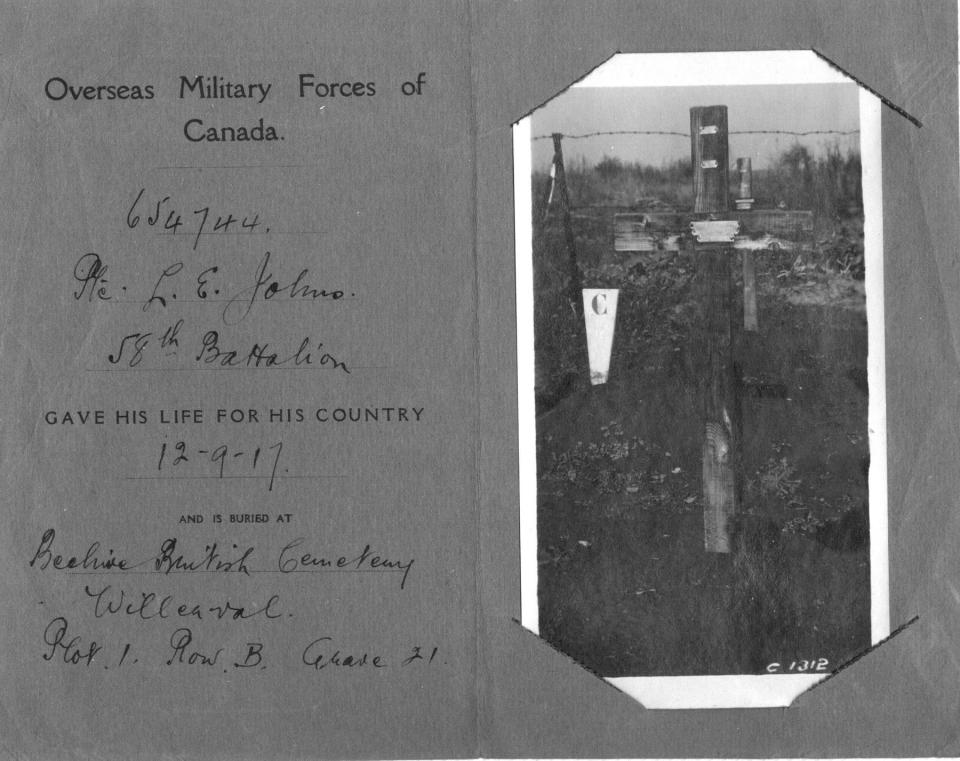 Overseas Military Forces of
Canada.
654744.
Pte. L. E. Johns.
58th Battalion
GAVE HIS LIFE FOR HIS COUNTRY
12-9-17.
AND IS BURIED AT
Beehive British Cemetery
Willerval.
Plot. 1. Row. B. Grave 21.
C
C 1312